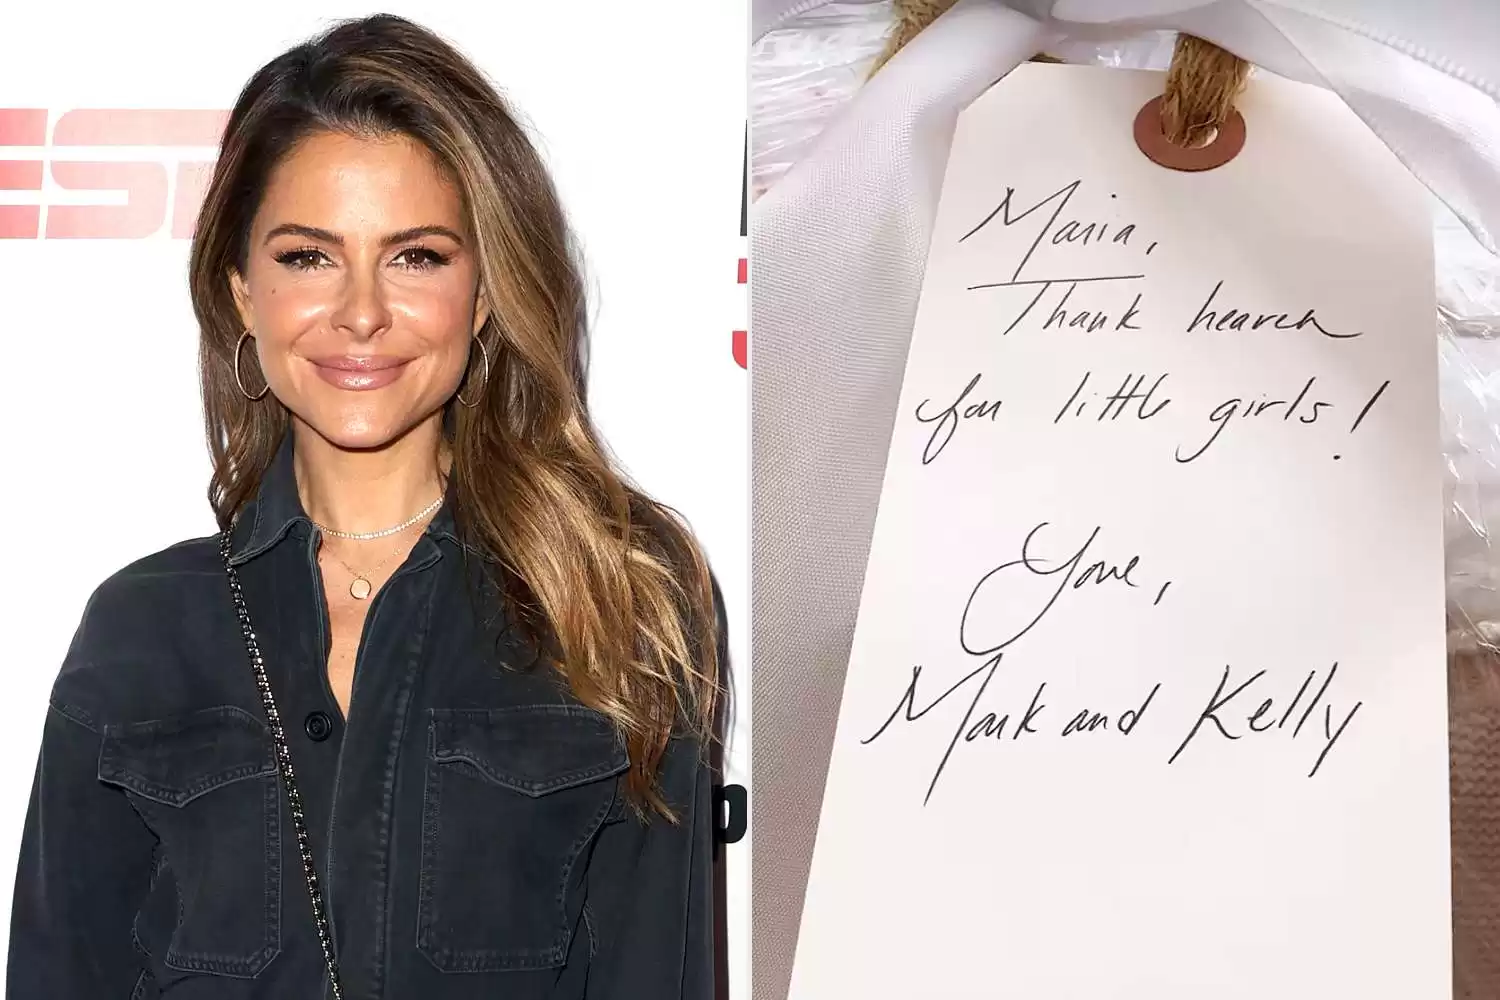 ESP
Maria,
Thank heaven
for little girls!
Love,
Mark and Kelly